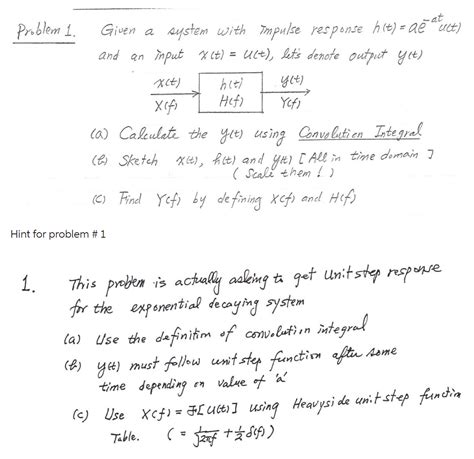 Problem 1. Given a system with impulse response h(t) = ae^-at u(t)
and an input x(t) = u(t), let's denote output y(t)
x(t) h(t) y(t)
X(f) H(f) Y(f)
(a) Calculate the y(t) using Convolution Integral
(b) Sketch x(t), h(t) and y(t) [All in time domain]
(Scale them!)
(c) Find Y(f) by defining X(f) and H(f)
Hint for problem # 1
1. This problem is actually asking to get unit step response
for the exponential decaying system
(a) Use the definition of convolution integral
(b) y(t) must follow unit step function after some
time depending on value of 'a'
(c) Use X(f) = F[u(t)] using Heavyside unit step function
Table. ( = 1/j2πf + 1/2 δ(f) )